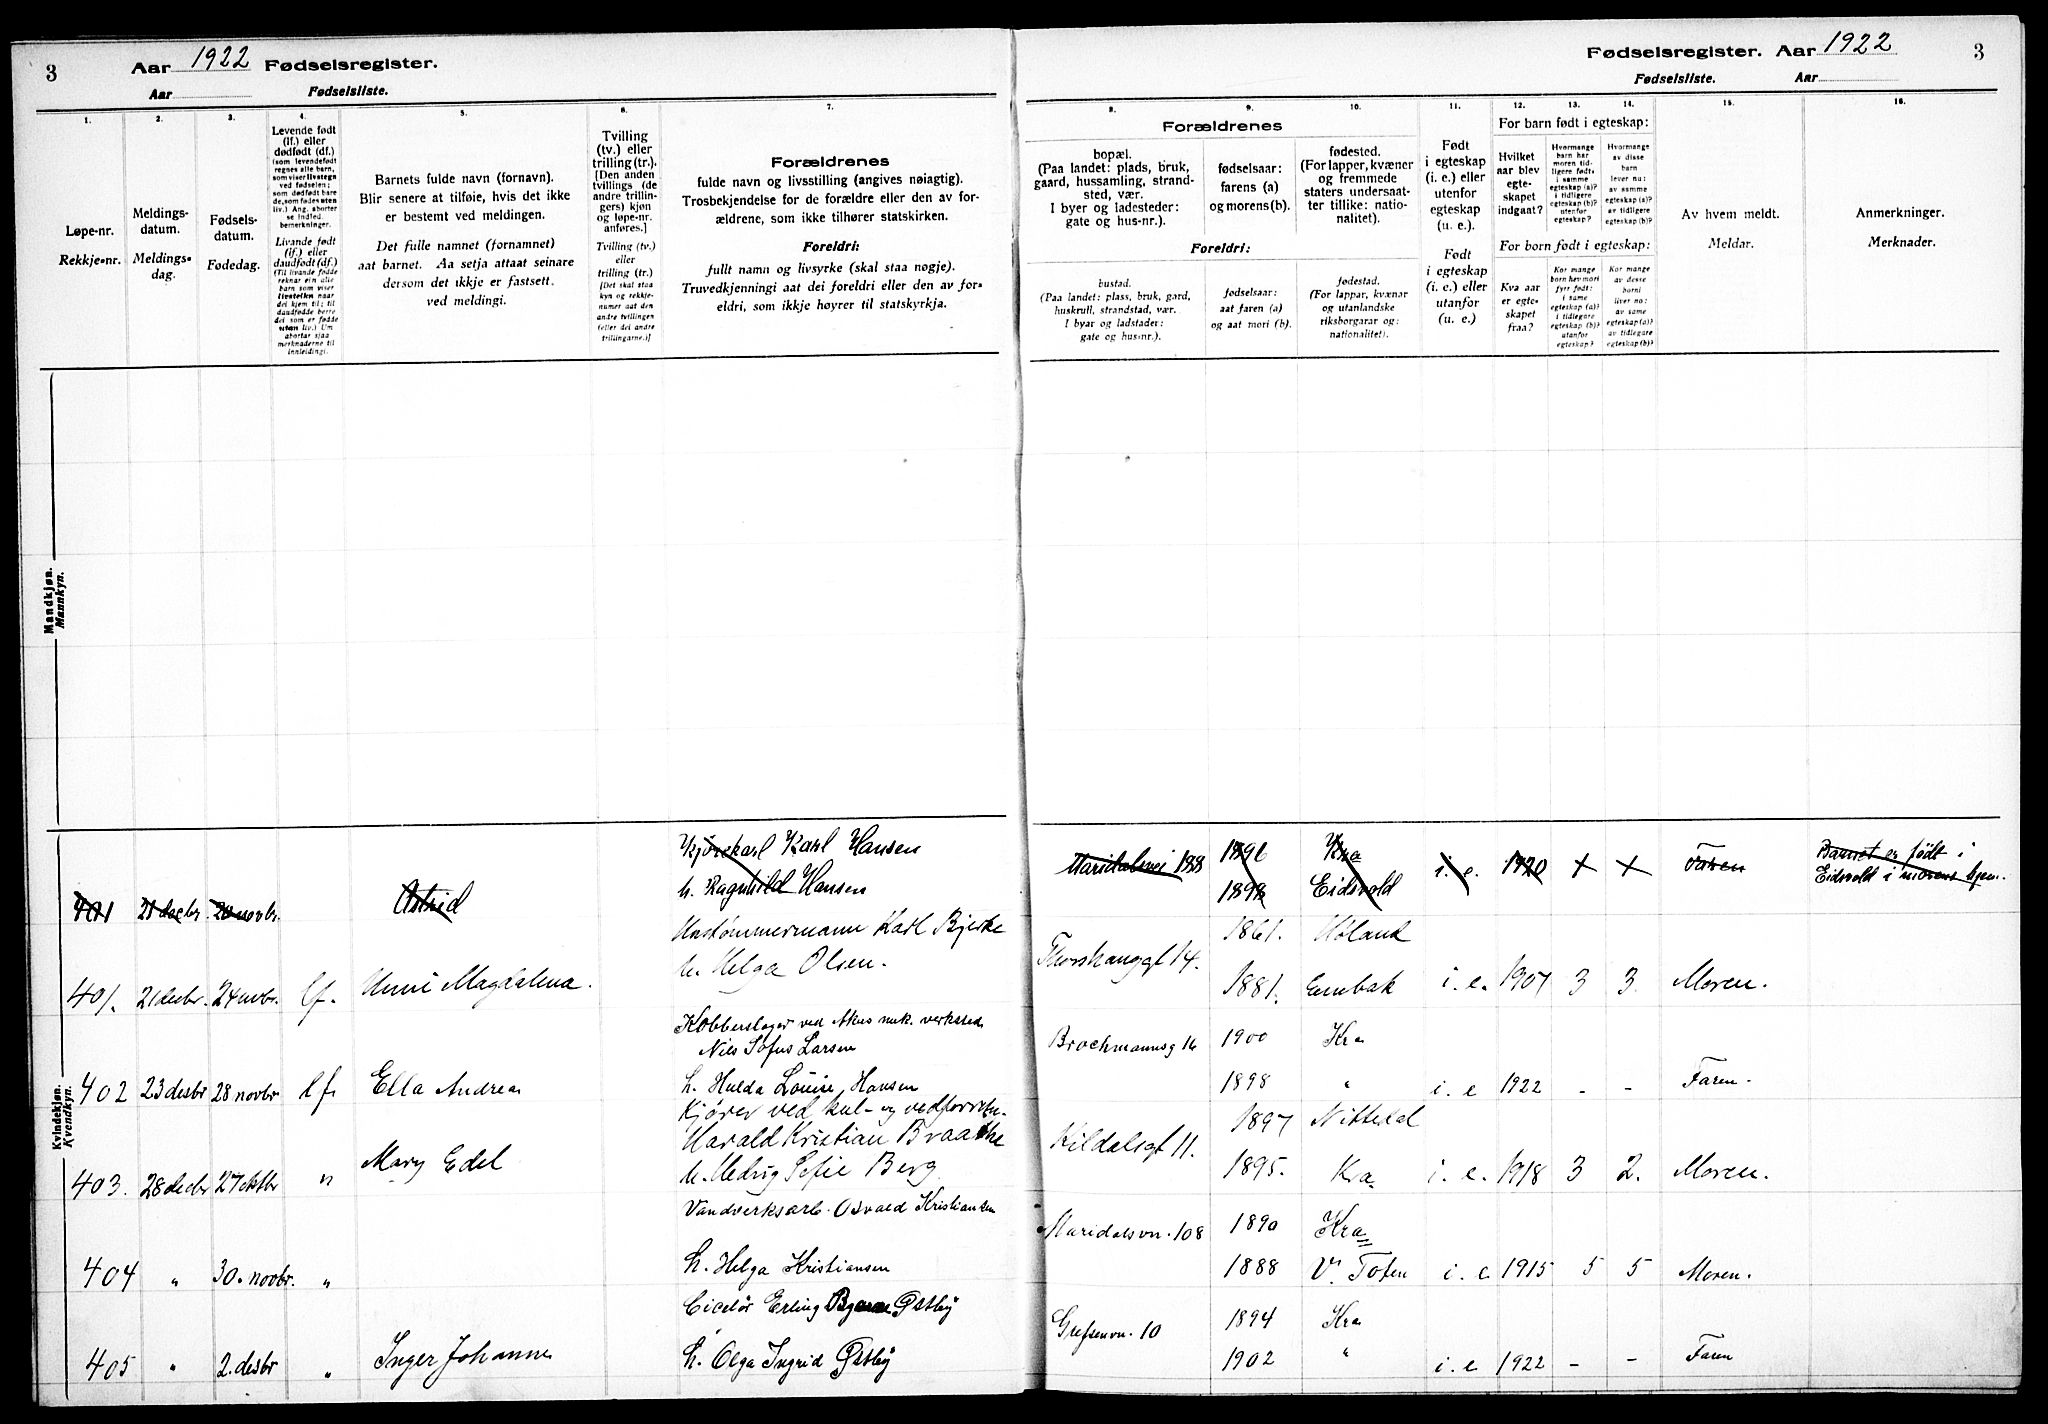 3
Aar 1922 Fødselsregister.
Aar Fødselsliste.
1.
2.
3.
4.
5.
6.
7.
Løpe-nr.
Rekkje-nr.
Meldings-
datum.
Meldings-
dag.
Fødsels-
datum.
Fødedag.
Levende født
(lf.) eller
dødfødt (df.)
(som levendefødt
regnes alle barn,
som viser livstegn
ved fødselen;
som dødfødt bare
de, som fødes uten
liv.) Ang. aborter
se indled.
bemerkninger.
Livande født
(lf.) eller
daudfødt (df.)
(Til livande fødde
reknar ein alle
barn som viser
livsteikn naar
dei kjem til; til
daudfødde berre
dei som er fødde
utan liv.) Um
abortar sjaa
merknaderne til
innleidingi.
Barnets fulde navn (fornavn).
Blir senere at tilføie, hvis det ikke
er bestemt ved meldingen.
Det fulle namnet (fornamnet)
aat barnet. Aa setja attaat seinare
dersom det ikkje er fastsett.
ved meldingi.
Tvilling
(tv.) eller
trilling (tr.).
[Den anden
tvillings (de
andre trillin-
gers) kjøn
og løpe-nr.
anføres.]
Tvilling (tv.)
eller
trilling (tr.)
[Det skal staa
kyn og rekkje-
numer aat den
andre tvillingen
(eller dei andre
trillingarne.)]
Forældrenes
fulde navn og livsstilling (angives nøiagtig).
Trosbekjendelse for de forældre eller den av for-
ældrene, som ikke tilhører statskirken.
Foreldri:
fullt namn og livsyrke (skal staa nøgje).
Truvedkjenningi aat dei foreldri eller den av for-
eldri, som ikkje høyrer til statskyrkja.
Mandkjøn.
Mannkyn.
Kvindekjøn.
Kvendkyn.
Kjørekarl Karl Hansen
401 21 decbr. 20 novbr. Astrid h. Ragnhild Hansen
Hustømmermann Karl Bjerke
401. 21 decbr. 24 novbr. lf. Unni Magdalena. h. Helga Olsen.
Kobberslager ved Akers mek. verksted
Nils Sofus Larsen
402 23 desbr 28 novbr. lf. Ella Andrea h. Hulda Louise, Hansen
Kjører ved kul- og vedforretn.
Harald Kristian Braathe
403. 28 decbr 27 oktbr " Mary Edel h. Hedvig Sofie Berg.
Vandverksarb. Osvald Kristiansen
404 " 30. novbr. " h. Helga Kristiansen
Ciselør Erling Østby
405 " 2. desbr " Inger Johanne h. Olga Ingrid Østby
Fødselsregister. Aar 1922 3
Fødselsliste. Aar
8.
9.
10.
11.
12.
13.
14.
15.
16.
Forældrenes
bopæl.
(Paa landet: plads, bruk,
gaard, hussamling, strand-
sted, vær.
I byer og ladesteder:
gate og hus-nr.).
fødselsaar:
farens (a)
og morens (b).
fødested.
(For lapper, kvæner
og fremmede
staters undersaat-
ter tillike: natio-
nalitet).
Foreldri:
bustad.
(Paa landet: plass, bruk, gard,
huskrull, strandstad, vær.
I byar og ladstader:
gate og hus-nr.).
fødselsaar:
aat faren (a)
og aat mori (b).
fødestad.
(For lappar, kvænar
og utanlandske
riksborgarar og:
nationalitet).
Født
i egteskap
(i. e.) eller
utenfor
egteskap
(u. e.).
Født
i egteskap
(i. e.) eller
utanfor
(u. e.)
For barn født i egteskap:
Hvilket
aar blev
egte-
skapet
indgaat?
Hvormange
barn har
moren tid-
ligere født,
i samme
egteskap (a)?
i tidligere
egteskap (b)?
utenfor
egteskap?
Hvormange
av disse
barn
lever nu:
av samme
egteskap (a)?
av tidligere
egteskap (b)?
For born født i egteskap:
Kva aar
er egte-
skapet
fraa?
Kor mange
born hev mori
fyrr født:
i same
egteskap (a)?
i tidlegare
egteskap (b)?
utanfor
egteskap?
Kor mange
av desse
borni
liver no:
av same
egteskap (a)?
av tidlegare
egteskap (b)?
Av hvem meldt.
Meldar.
Anmerkninger.
Merknader.
Maridalsvei 188 1896 Kra i. e. 1920 + + Faren Barnet er født i
1898 Eidsvold Eidsvold i morens hjem.
Thorshauggt 14. 1861. Høland
1881. Enebak i. e. 1907 3 3. Moren.
Brochmannsg 16 1900 Kra
1898 " i. e 1922 - - Faren.
Kildalsgt 11. 1897 Nittedal
1895. Kra i. e. 1918 3 2. Moren.
Maridalsvn. 108 1890 Kra
1888 V. Toten i. e 1915 5 5 Moren.
Grefsenvn. 10 1894 Kra
1902 " i. e 1922 - - Faren